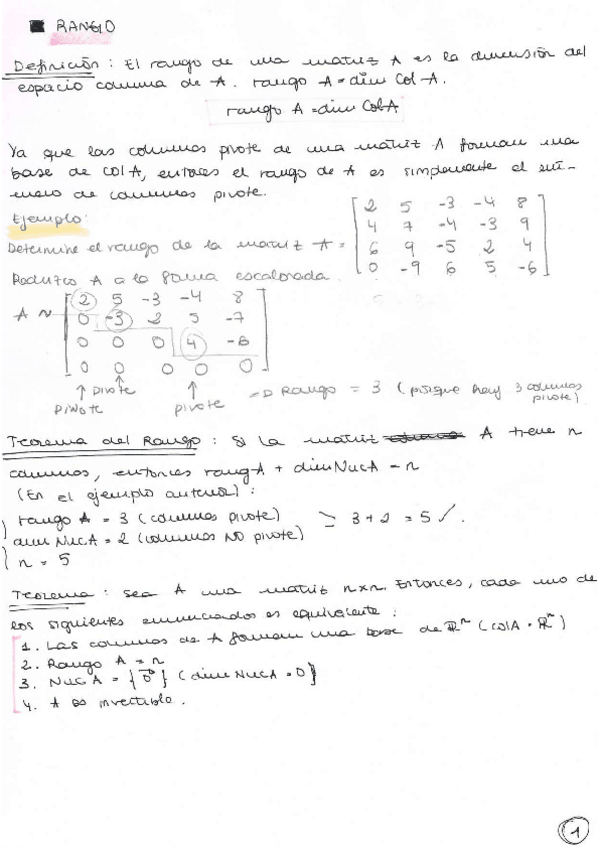 ■ RANGO
Definición: El rango de una matriz A es la dimensión del
espacio columna de A. rango A = dim Col A.
rango A = dim Col A
Ya que las columnas pivote de una matriz A forman una
base de Col A, entonces el rango de A es simplemente el nú-
mero de columnas pivote.
Ejemplo:
Determine el rango de la matriz A = [2 5 -3 -4 8
4 7 -4 -3 9
6 9 -5 2 4
0 -9 6 5 -6]
Reduzco A a la forma escalonada.
A ~ [2 5 -3 -4 8
0 -3 2 5 -7
0 0 0 4 -6
0 0 0 0 0]
↑ pivote ↑ pivote ↑ pivote => Rango = 3 (porque hay 3 columnas
pivote)
Teorema del Rango: Si la matriz A tiene n
columnas, entonces rang A + dim Nuc A = n
(En el ejemplo anterior):
rango A = 3 (columnas pivote)
dim Nuc A = 2 (columnas NO pivote) 3 + 2 = 5 ✓.
n = 5
Teorema: sea A una matriz n×n. Entonces, cada uno de
los siguientes enunciados es equivalente:
1. Las columnas de A forman una base de ℝⁿ (Col A = ℝⁿ)
2. Rango A = n
3. Nuc A = {0⃗} (dim Nuc A = 0)
4. A es invertible.
1